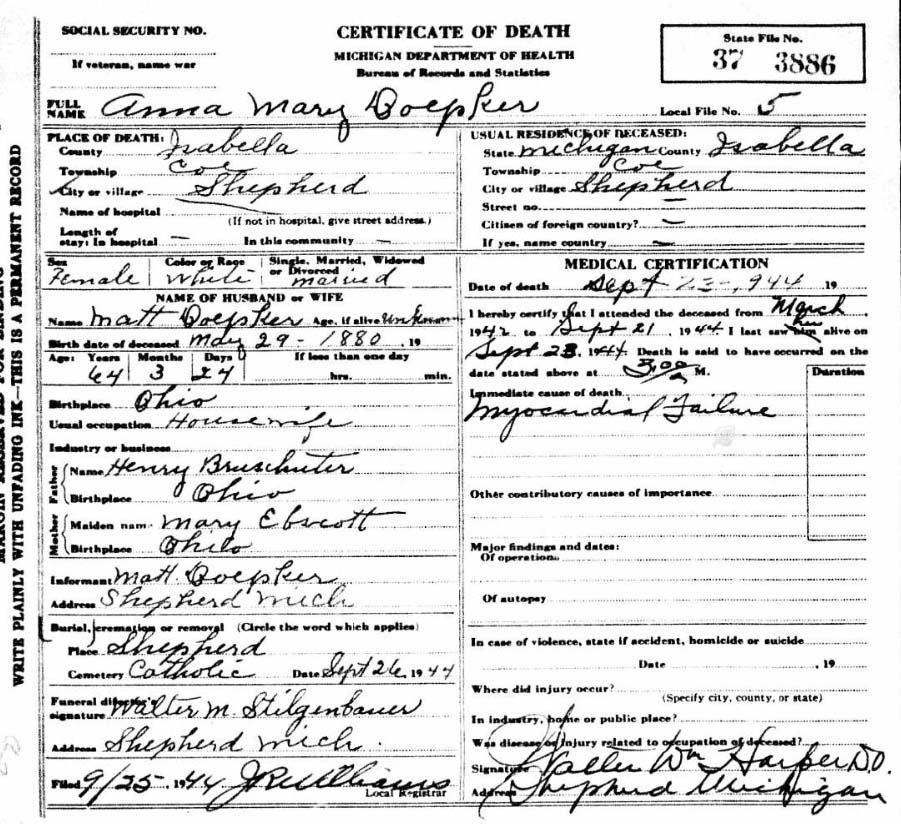 SOCIAL SECURITY NO.
If veteran, name war
CERTIFICATE OF DEATH
MICHIGAN DEPARTMENT OF HEALTH
Bureau of Records and Statistics
State File No.
37 3886
FULL NAME Anna Mary Doepker
Local File No. 5
PLACE OF DEATH:
County Isabella
Township Coe
City or village Shepherd
Name of hospital
(If not in hospital, give street address.)
Length of stay: In hospital — In this community —
USUAL RESIDENCE OF DECEASED:
State Michigan County Isabella
Township Coe
City or village Shepherd
Street no. —
Citizen of foreign country? —
If yes, name country —
Sex Female
Color or Race White
Single, Married, Widowed or Divorced married
NAME OF HUSBAND or WIFE
Name Matt Doepker Age, if alive Unknown
Birth date of deceased May 29 - 1880, 19
Age: Years Months Days If less than one day
64 3 24 hrs. min.
Birthplace Ohio
Usual occupation Housewife
Industry or business
Father Name Henry Bruschuter
Birthplace Ohio
Mother Maiden nam Mary Ebscott
Birthplace Ohio
Informant Matt. Doepker
Address Shepherd Mich
Burial, cremation or removal (Circle the word which applies)
Place Shepherd
Cemetery Catholic Date Sept 26, 1944
Funeral director's signature Walter M. Stilgenbauer
Address Shepherd Mich.
Filed 9/25, 1944 J R Williams
Local Registrar
MEDICAL CERTIFICATION
Date of death Sept 23-, 944 19
I hereby certify that I attended the deceased from March
1942 to Sept 21, 1944 I last saw him her alive on
Sept 23, 1944. Death is said to have occurred on the
date stated above at 3:00 a M.
Duration
Immediate cause of death
Myocardial Failure
Other contributory causes of importance
Major findings and dates:
Of operation
Of autopsy
In case of violence, state if accident, homicide or suicide
Date , 19
Where did injury occur?
(Specify city, county, or state)
In industry, home or public place?
Was disease or injury related to occupation of deceased?
Signature Walter Wm Harper D.O.
Address Shepherd Michigan
WRITE PLAINLY WITH UNFADING INK—THIS IS A PERMANENT RECORD